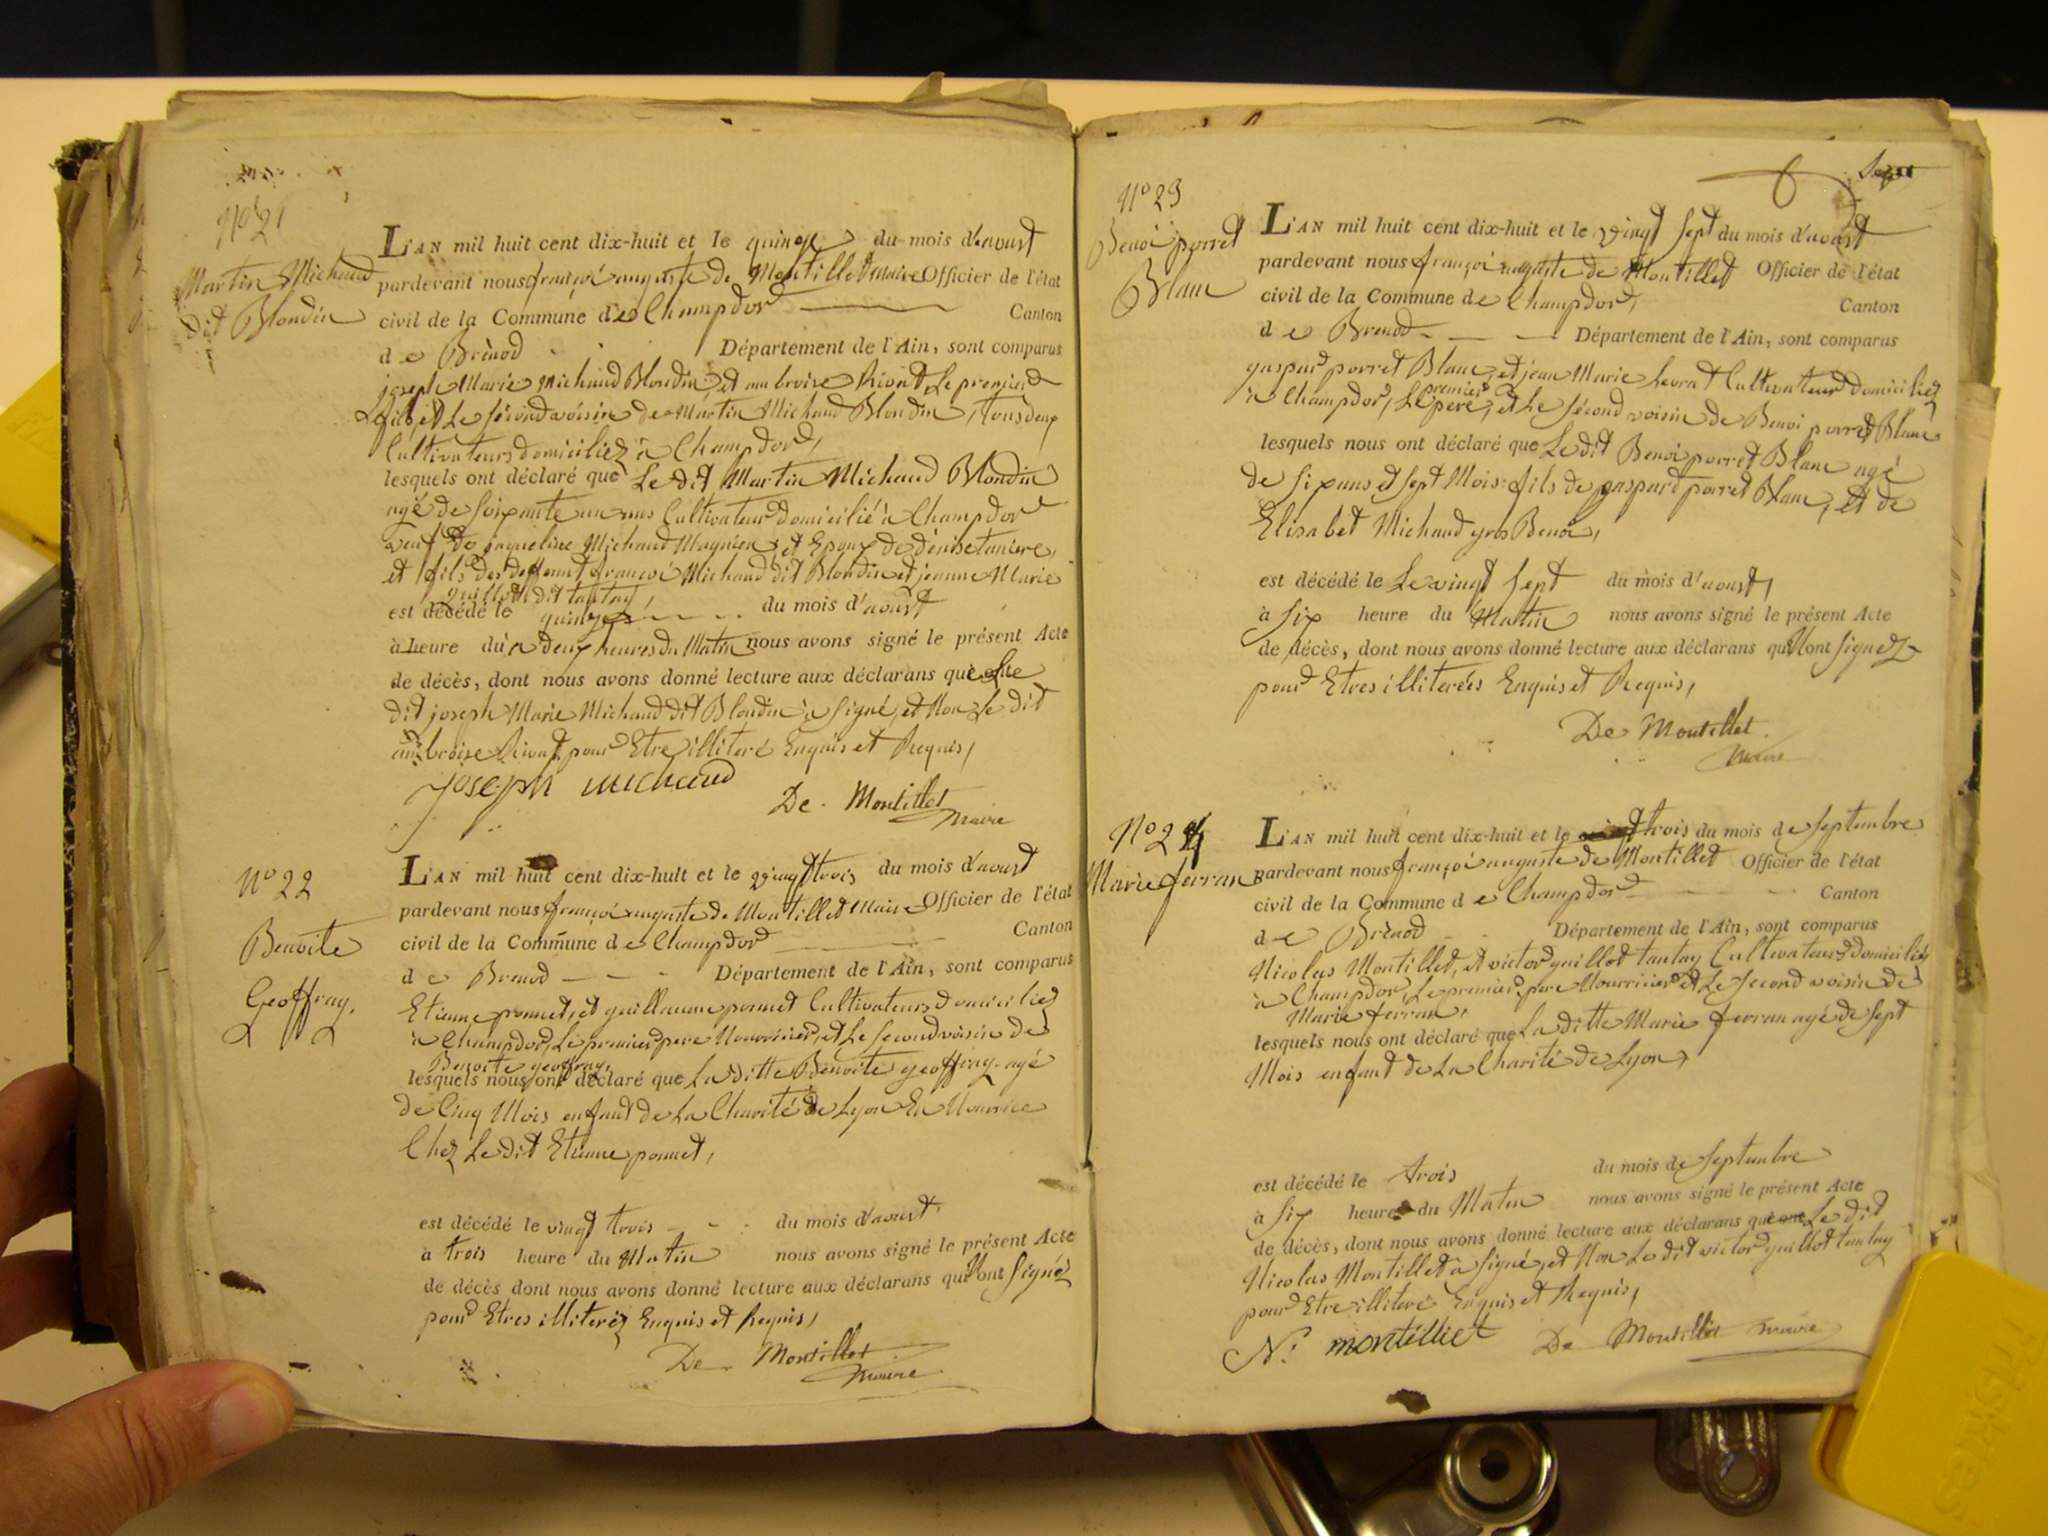 N° 21
Martin Michaud
dit Blondin
L'AN mil huit cent dix-huit et le quinze du mois d'aoust
pardevant nous françoi auguste de Montillet Maire Officier de l'état
civil de la Commune de Champdor Canton
de Brénod Département de l'Ain, sont comparus
joseph Marie Michaud Blondin et ambroise Rivat, Le premier
fils et Le sécond voisin de Martin Michaud Blondin, tous deux
Cultivateurs domiciliez à Champdor,
lesquels ont déclaré que Le dit Martin Michaud Blondin
agé de soixante un ans Cultivateur domicilié à Champdor
veuf de jaqueline Michaud Magnien, et Epoux de dénise taniere,
et fils des deffeunt françoi Michaud dit Blondin et jeanne Marie
guillot dit tautay,
est décédé le quinze du mois d'aoust
à heure du à deux heures du Matin nous avons signé le présent Acte
de décès, dont nous avons donné lecture aux déclarans que Le
dit joseph Marie Michaud dit Blondin à signé, et Non Le dit
ambroise Rivat pour Etre illiteré Enquis et Requis,
Joseph michaud
De Montillet
Maire
N° 22
Benoite
Geoffray,
L'AN mil huit cent dix-huit et le vingt trois du mois d'aoust
pardevant nous françoi auguste de Montillet Maire Officier de l'état
civil de la Commune de Champdor Canton
de Brenod Département de l'Ain, sont comparus
Etienne ponnet, et guillaume ponnet Cultivateurs domiciliez
à Champdor, Le premier pere Nourricier, et Le second voisin de
Benoite geoffray,
lesquels nous ont déclaré que La ditte Benoite geoffray agé
de Cinq Mois enfant de La Charité de Lyon En Nourrice
Chez Le dit Etienne ponnet,
est décédé le vingt trois du mois d'aoust,
à trois heure du Matin nous avons signé le présent Acte
de décès dont nous avons donné lecture aux déclarans qui Nont Signéz
pour Etres illiteréz Enquis et Requis,
De Montillet
Maire
N° 23
Benoi porret
Blanc
L'AN mil huit cent dix-huit et le vingt Sept du mois d'aoust
pardevant nous françoi auguste de Montillet Officier de l'état
civil de la Commune de Champdor, Canton
de Brenod Département de l'Ain, sont comparus
gaspard porret Blanc, et jean Marie Levrat Cultivateurs domiciliez
à Champdor, Le premier pere, et Le sécond voisin de Benoi porret Blanc
lesquels nous ont déclaré que Le dit Benoi porret Blanc agé
de six ans et sept Mois fils de gaspard porret Blanc, et de
Elisabet Michaud gros Benoi,
est décédé le Le vingt Sept du mois d'aoust,
à Six heure du Matin nous avons signé le présent Acte
de décès, dont nous avons donné lecture aux déclarans qui Nont Signez
pour Etres illiterées Enquis et Requis,
De Montillet
Maire
N° 24
Marie ferran
L'AN mil huit cent dix-huit et le trois du mois de septembre
pardevant nous françoi auguste de Montillet Officier de l'état
civil de la Commune de Champdor Canton
de Brénod Département de l'Ain, sont comparus
Nicolas Montillet, et victor guillot tautay Cultivateurs domiciliéz
à Champdor, Le premier pere Nourricier et Le second voisin de
Marie ferran,
lesquels nous ont déclaré que La ditte Marie ferran agé de sept
Mois enfant de La Charité de Lyon,
est décédé le trois du mois de septembre
à six heure du Matin nous avons signé le présent Acte
de décès, dont nous avons donné lecture aux déclarans que Le dit
Nicolas Montillet à signé, et Non Le dit victor guillot tautay
pour Etre illiteré Enquis et Requis,
N. montilliet De Montillet maire